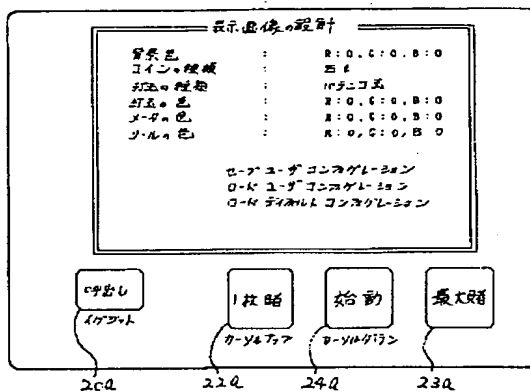 表示画像の設計
背景色 : R:0, G:0, B:0
コインの種類 : 石c
打玉の種類 : パチンコ玉
打玉の色 : R:0, G:0, B:0
メータの色 : R:0, G:0, B:0
リールの色 : R:0, G:0, B 0
セーブ ユーザ コンフィグレーション
ロード ユーザ コンフィグレーション
ロード ディフォルト コンフィグレーション
呼出し 1枚賭 始動 最大賭
イグジット カーソルアップ カーソルダウン
20a 22a 24a 23a